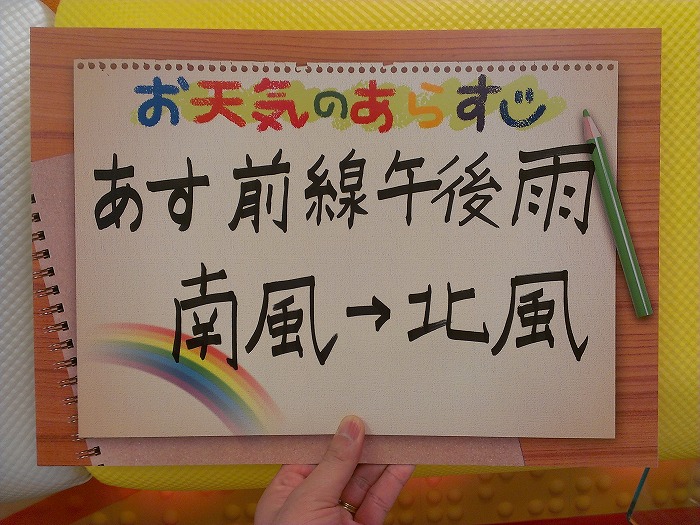 お天気のあらすじ
あす前線午後雨
南風→北風